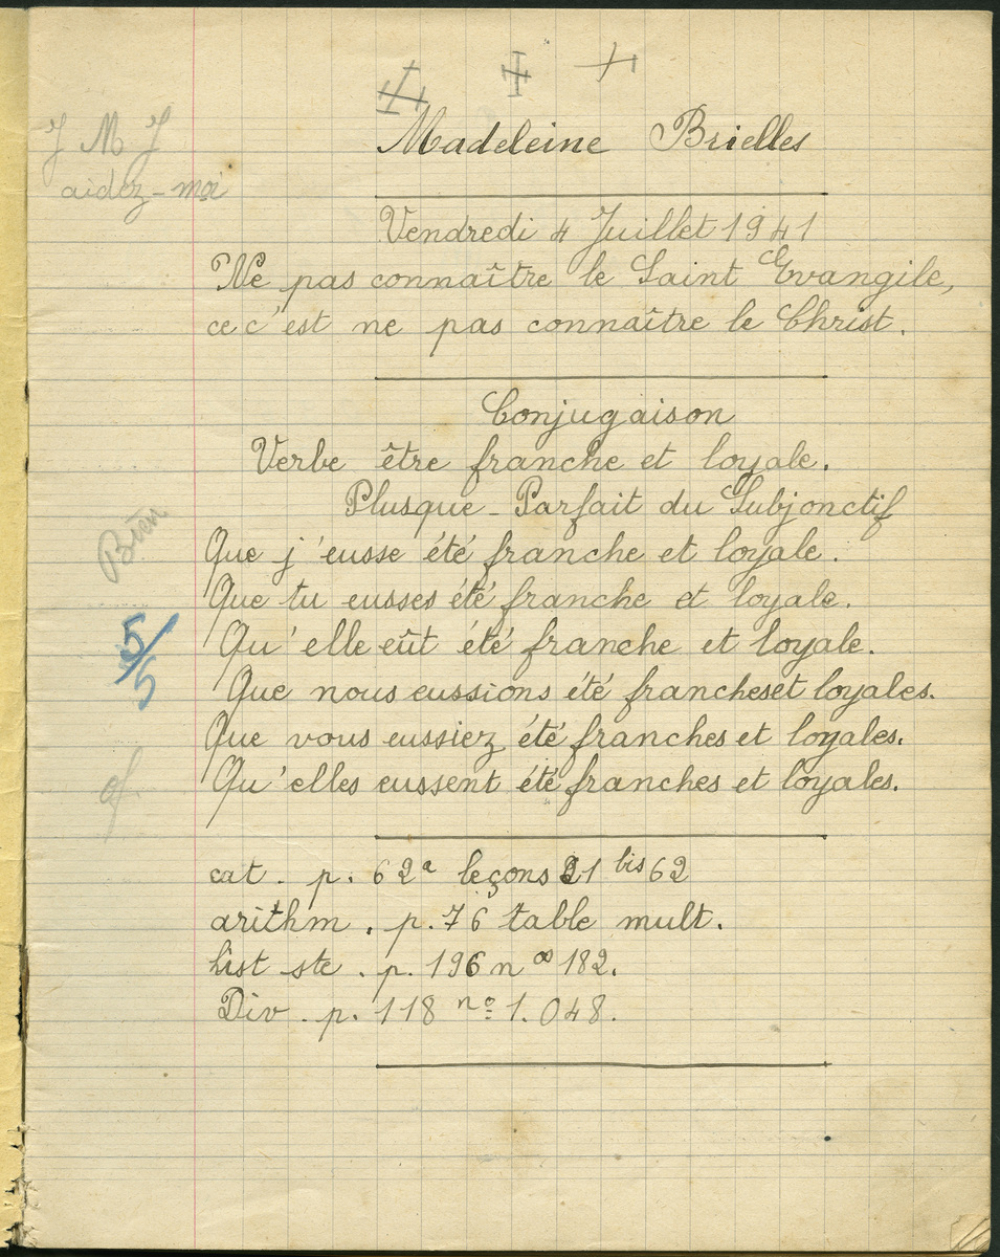 J M J
aidez-moi
Madeleine Brielles
Vendredi 4 Juillet 1941
Ne pas connaître le Saint Evangile,
ce c'est ne pas connaître le Christ.
Conjugaison
Verbe être franche et loyale.
Plusque-Parfait du Subjonctif
Que j'eusse été franche et loyale.
Que tu eusses été franche et loyale.
Qu'elle eût été franche et loyale.
Que nous eussions été franches et loyales.
Que vous eussiez été franches et loyales.
Qu'elles eussent été franches et loyales.
Bien
5/5
cat. p. 62a leçons 21 bis 62
arithm. p. 76 table mult.
hist ste. p. 196 n° 182.
Div. p. 118 nº 1.048.